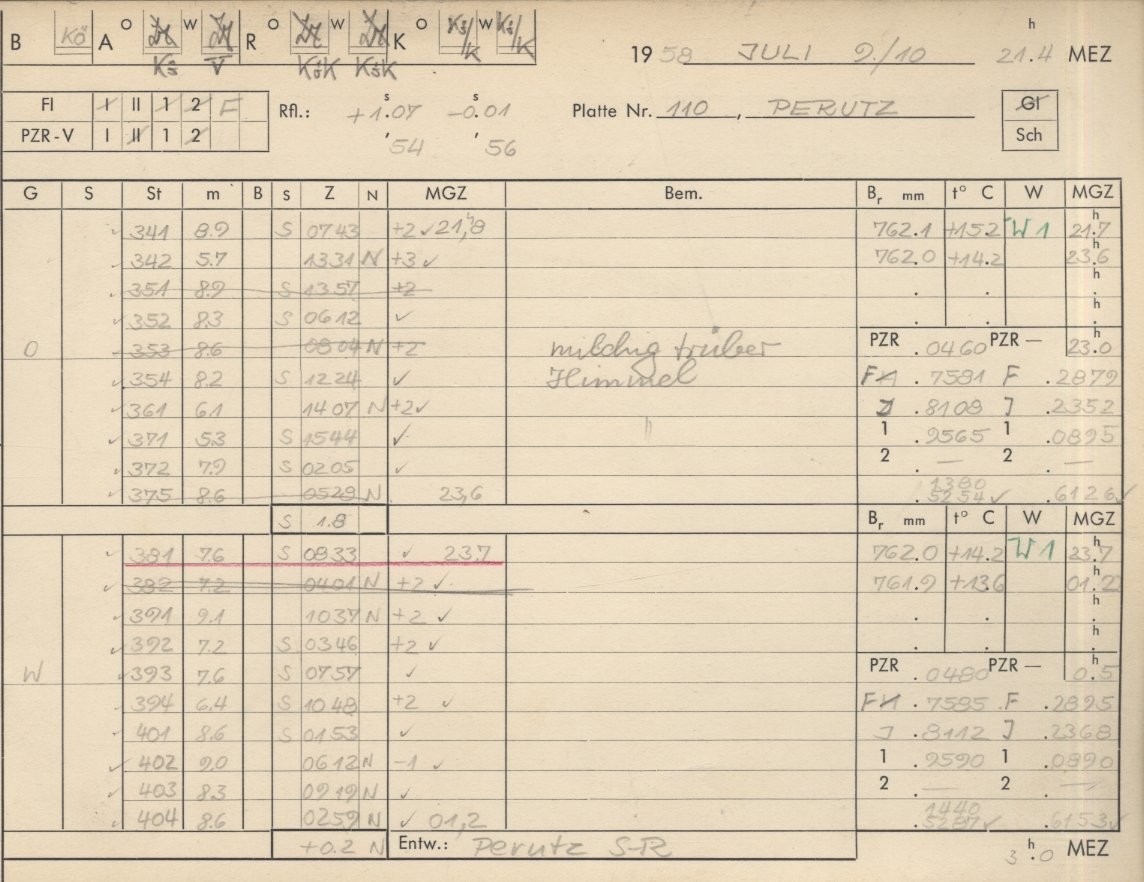 B Kö A O W R O W K O Kš/K W Kš/K h
Kš V KšK KšK 19 58 JULI 9./10 21.4 MEZ
FI I II 1 2 F Rfl.: +1.07 s -0.01 s Platte Nr. 110, PERUTZ GI
PZR-V I II 1 2 '54 '56 Sch
G S St m B S Z N MGZ Bem. Br mm t° C W MGZ
341 8.9 S 0743 +2 ✓ 21,8 h 762.1 +15.2 W 1 21.7 h
342 5.7 1331 N +3 ✓ 762.0 +14.2 23.6 h
351 8.9 S 1357 +2 . . . h
352 8.3 S 0612 ✓ . . . h
O 353 8.6 0804 N +2 milchig trüber PZR .0460 PZR – 23.0 h
354 8.2 S 1224 ✓ Himmel F .7581 F .2879
361 6.1 1407 N +2 ✓ J .8108 J .2352
371 5.3 S 1544 ✓ 1 .9565 1 .0895
372 7.9 S 0205 ✓ 2 . — 2 . —
375 8.6 0528 N 23,6 1380
.5254 ✓ .6126 ✓
S 1.8 Br mm t° C W MGZ
381 7.6 S 0833 ✓ 23.7 762.0 +14.2 W 1 23.7 h
382 7.2 0401 N +2 ✓ 761.9 +13.6 01.2 h
391 9.1 1037 N +2 ✓ . . . h
392 7.2 S 0346 +2 ✓ . . . h
W 393 7.6 S 0757 ✓ PZR .0480 PZR – 0.5 h
394 6.4 S 1048 +2 ✓ F .7585 F .2895
401 8.6 S 0153 ✓ J .8112 J .2368
402 9.0 0612 N -1 ✓ 1 .9590 1 .0890
403 8.3 0919 N ✓ 2 . — 2 . —
404 8.6 0259 N ✓ 01,2 1440
.5287 ✓ .6153 ✓
+0.2 N Entw.: Perutz S-R 3 h .0 MEZ